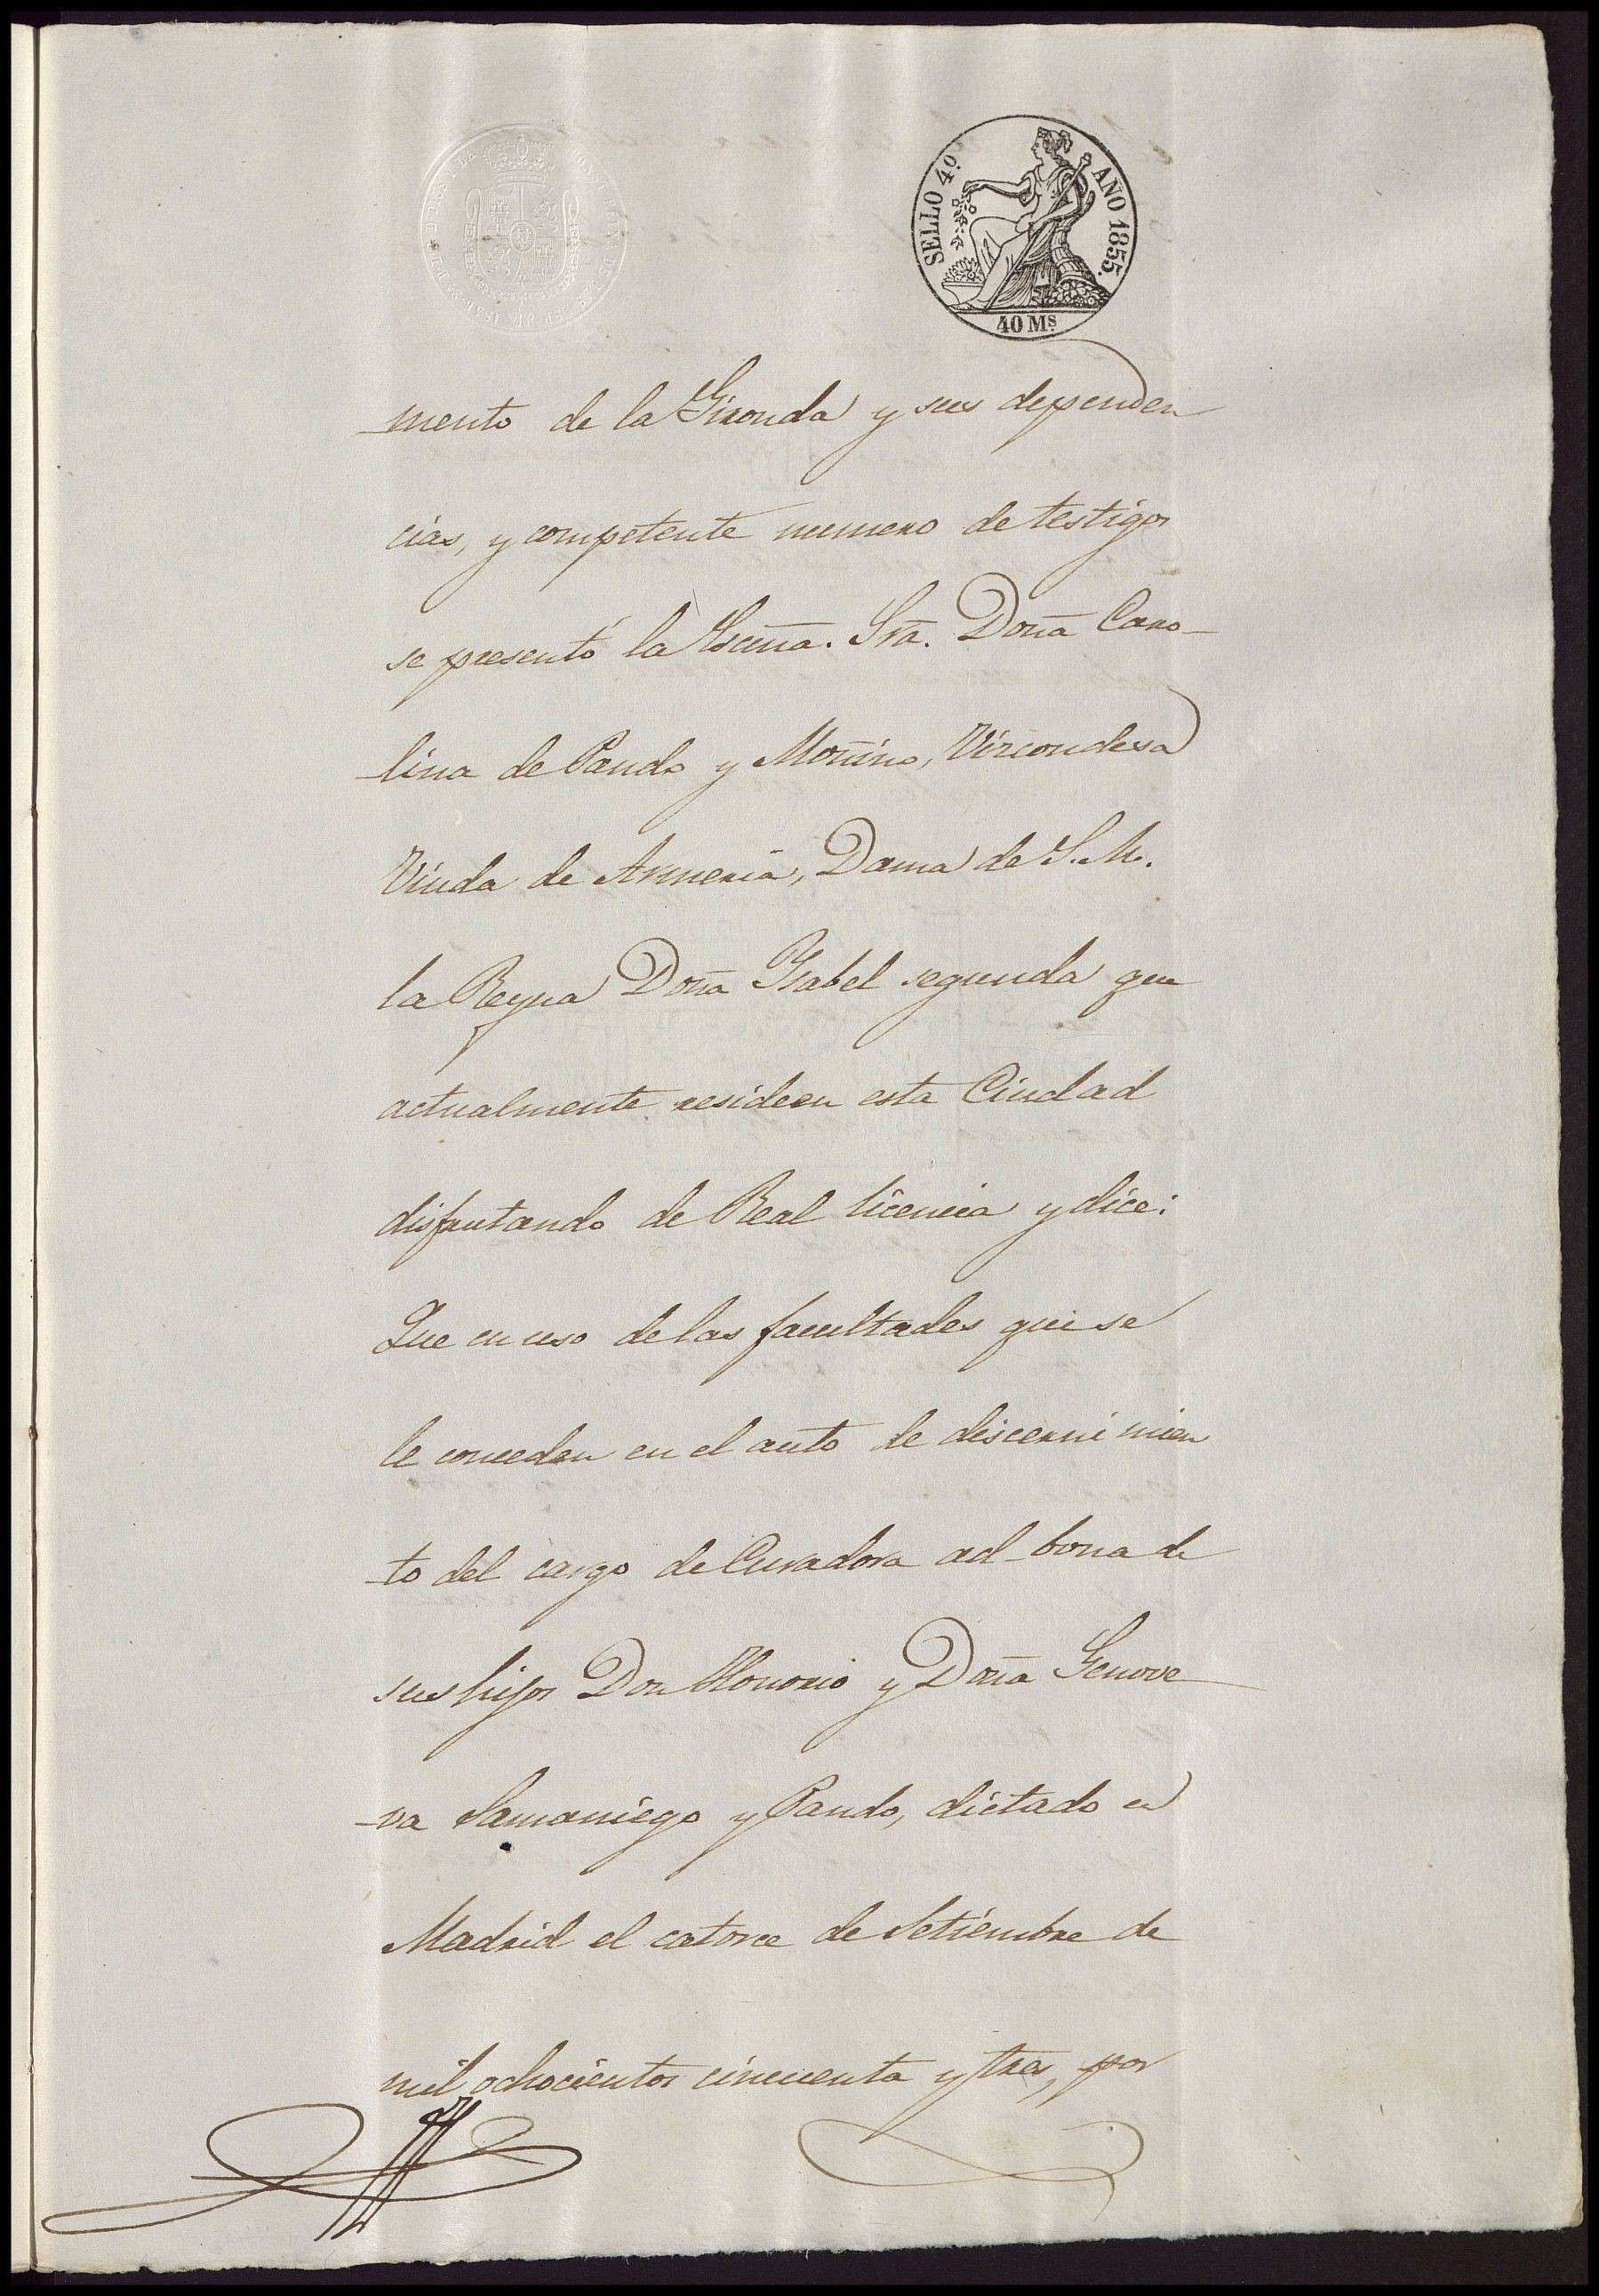 SELLO 4º
AÑO 1855.
40 Ms
mento de la Gironda y sus dependen
cias, y competente numero de testigos
se presentó la Escma. Sra. Doña Caro-
lina de Pando y Moñino, Vizcondesa
Viuda de Armeria, Dama de S. M.
la Reyna Doña Ysabel segunda que
actualmente reside en esta Ciudad
disfrutando de Real licencia y dice:
Que en uso de las facultades que se
le conceden en el auto de discernimien
to del cargo de Curadora ad-bona de
sus hijos Don Honorio y Doña Genove
va Samaniego y Pando, dictado en
Madrid el catorce de Setiembre de
mil ochocientos cincuenta y tres, por